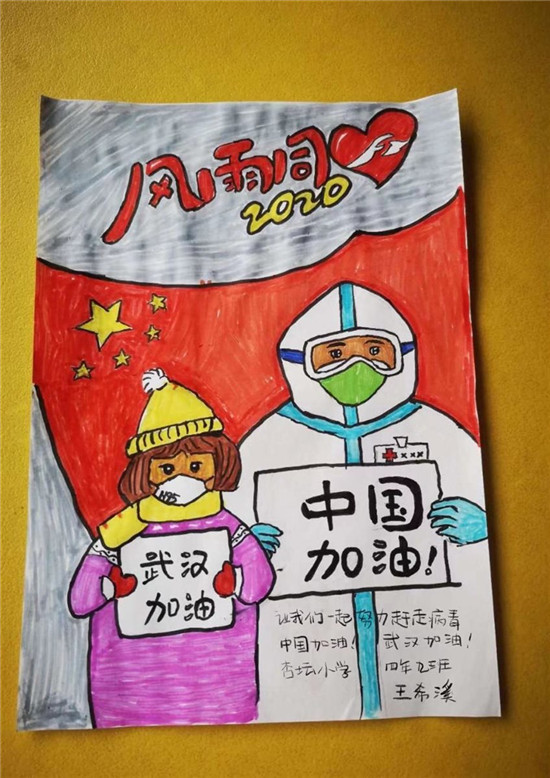 风雨同
2020
N95
武汉
加油
中国
加油!
×××
让我们一起努力赶走病毒
中国加油! 武汉加油!
杏坛小学 四年2班
王希溪